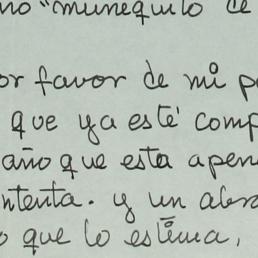 no "muñequito de
or favor de mi p
que ya esté comp
año que esta apen
ntenta. y un abra
o que lo estima,